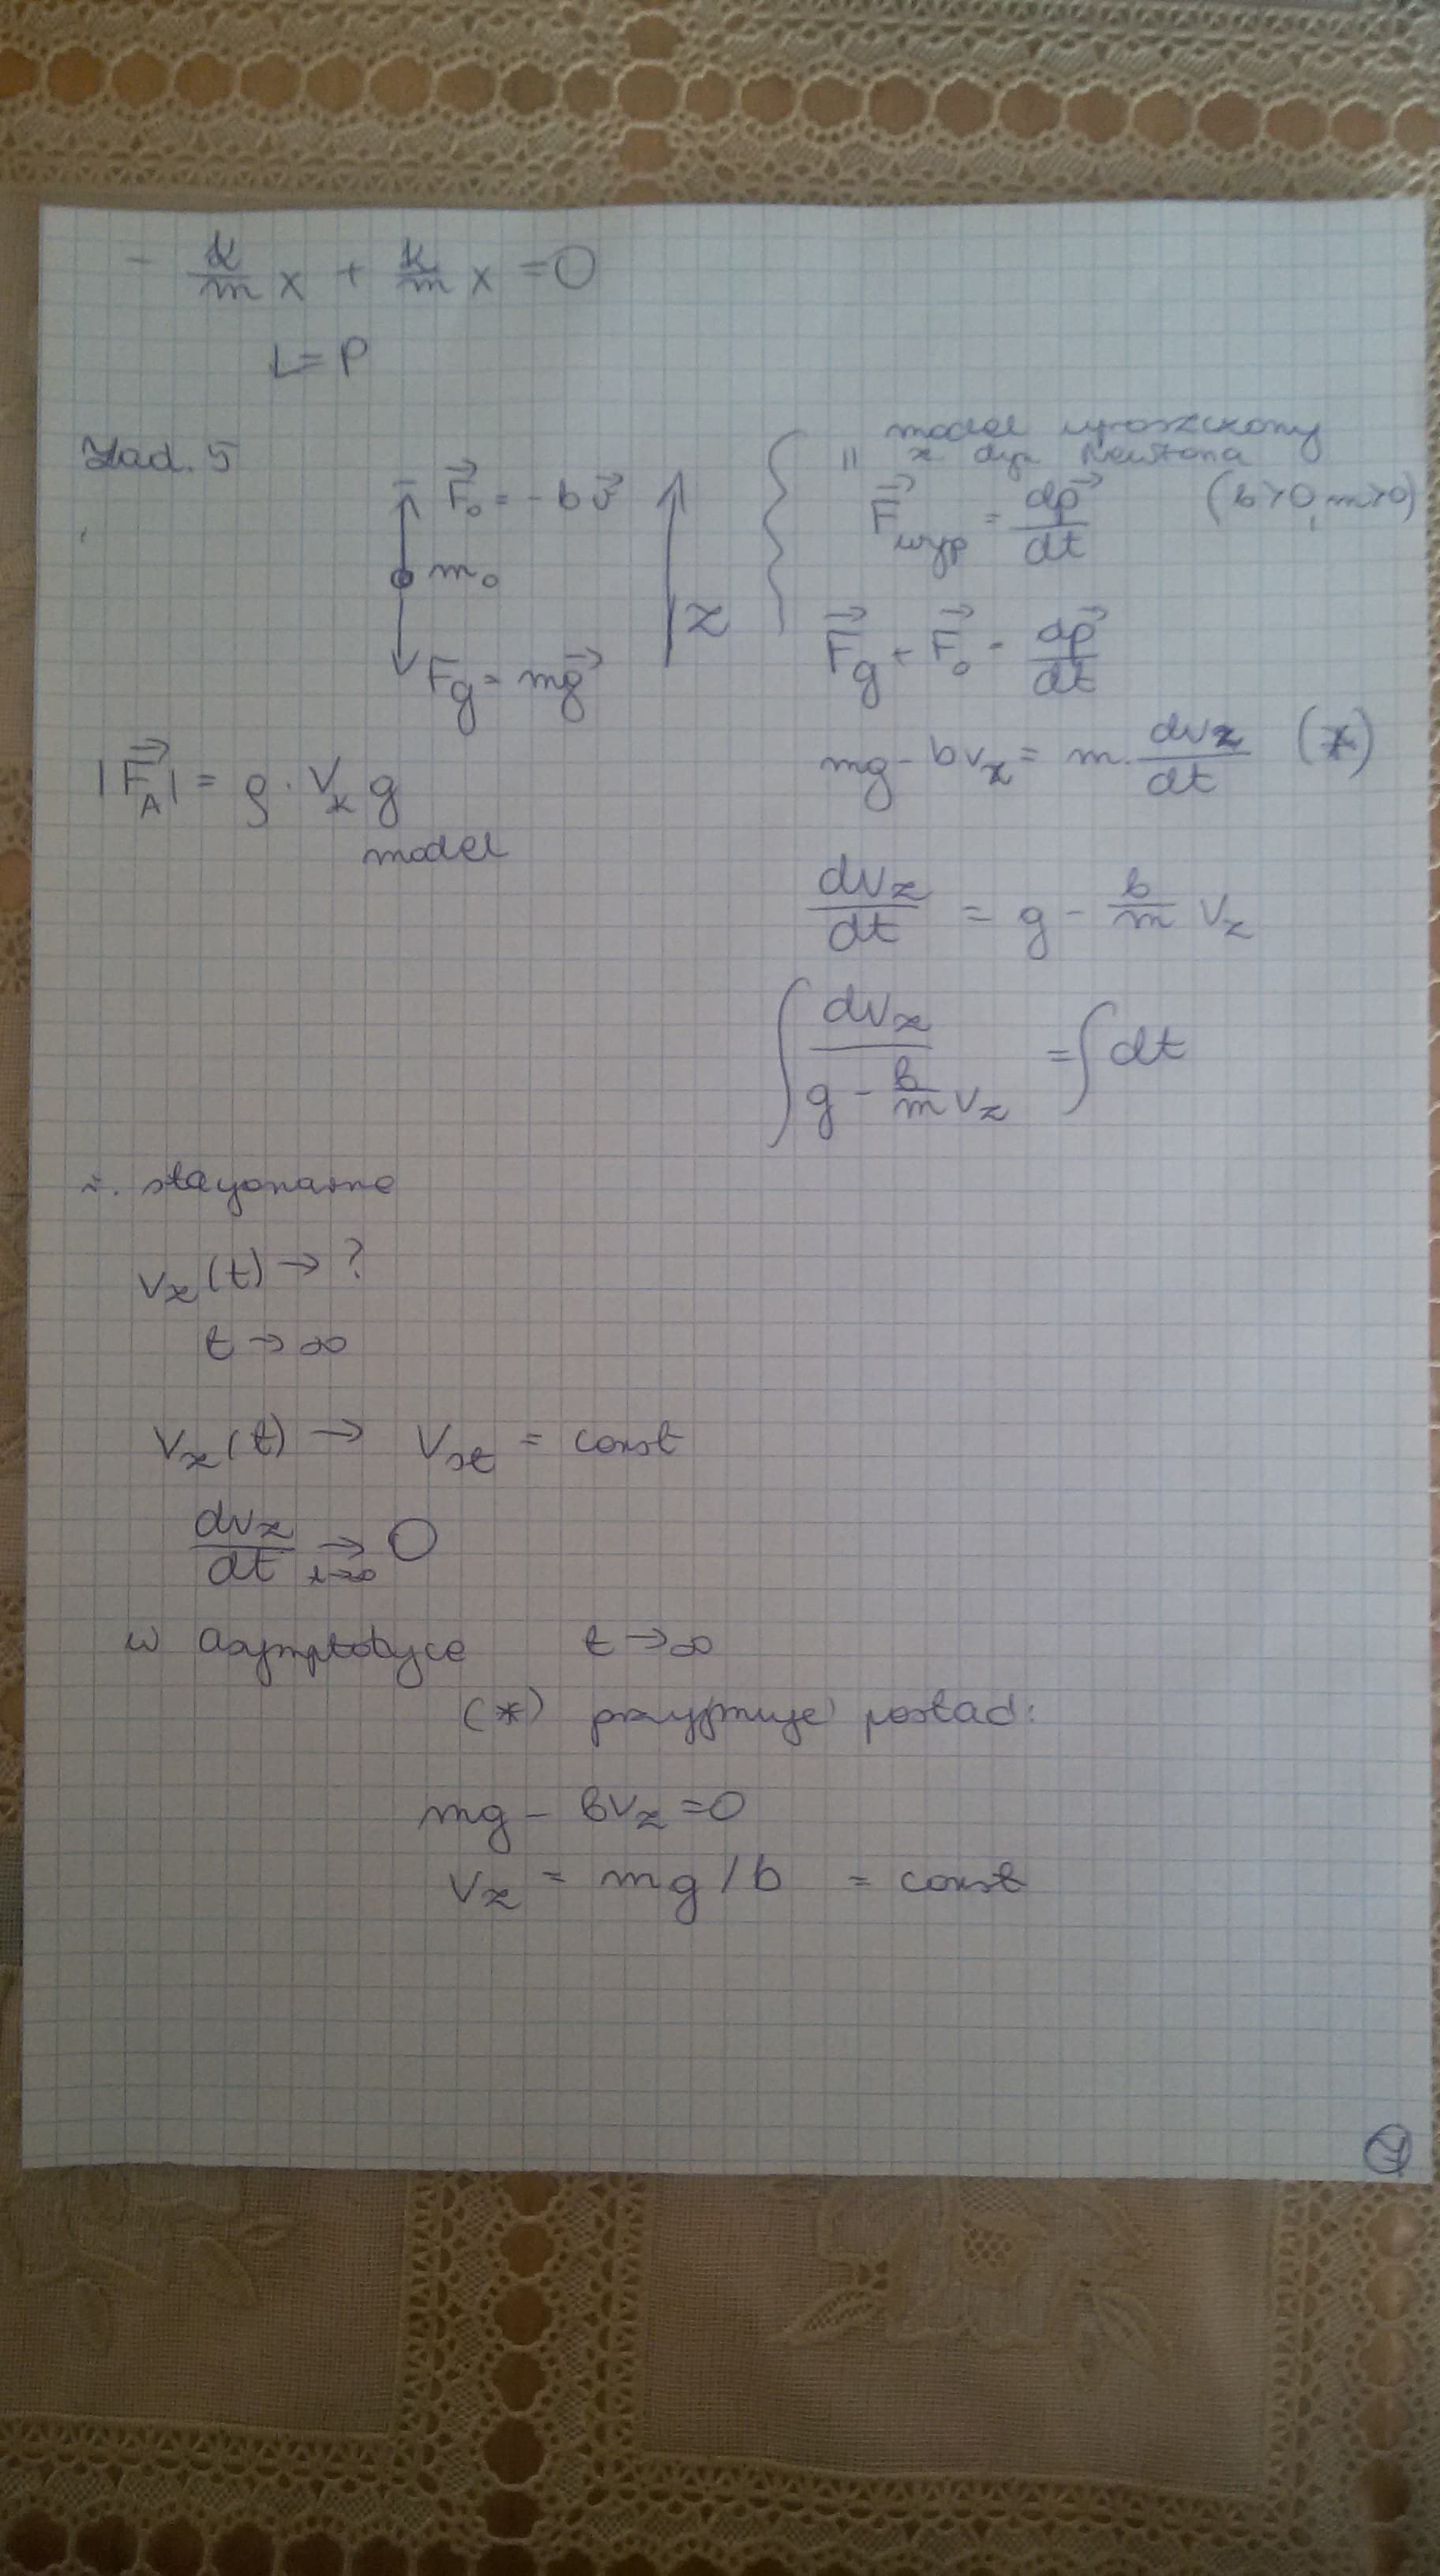 - k/m x + k/m x = 0
L = P
Zad. 5
F⃗₀ = - b v⃗
m₀
F_g = m g⃗
z
model uproszczony
II z. dyn. Newtona
F⃗_wyp = dp⃗/dt (b>0, m>0)
F⃗_g + F⃗₀ = dp⃗/dt
mg - bv_z = m · dv_z/dt (*)
|F⃗_A| = ρ · V_* g
model
dv_z/dt = g - b/m v_z
∫ dv_z/(g - b/m v_z) = ∫ dt
r. stacjonarne
v_z(t) → ?
t → ∞
v_z(t) → V_st = const
dv_z/dt →_(t→∞) 0
w asymptotyce t → ∞
(*) przyjmuje postać:
mg - bv_z = 0
v_z = mg / b = const
7